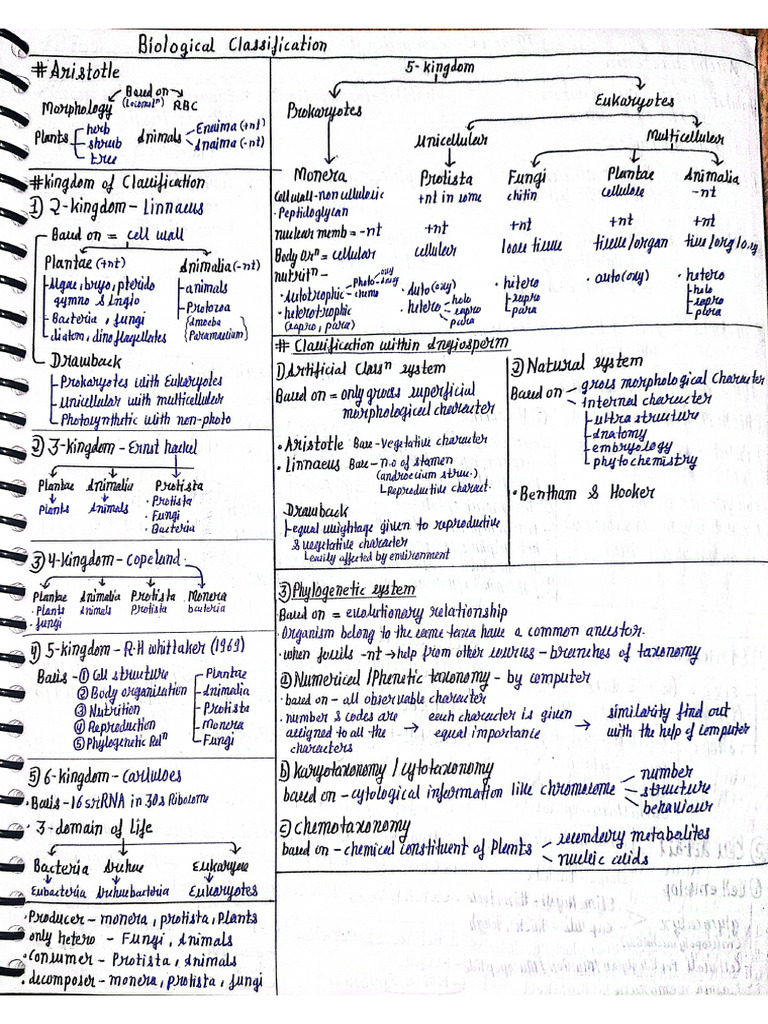 Biological Classification
#Aristotle
Based on
Morphology (locomotⁿ) RBC
Plants herb shrub tree
Animals Enaima (+nt) Anaima (-nt)
#kingdom of Classification
1) 2-kingdom - Linnaeus
Based on = cell wall
Plantae (+nt) Animalia (-nt)
Algae, bryo, pterido gymno & Angio
Bacteria, fungi
diatom, dinoflagellates
animals
Protozoa
(Amoeba Paramaecium)
Drawback
Prokaryotes with Eukaryotes
Unicellular with multicellular
Photosynthetic with non-photo
2) 3-kingdom - Ernst haekel
Plantae Animalia Protista
Plants Animals • Protista
• Fungi
• Bacteria
3) 4-kingdom - copeland
Plantae Animalia Protista Monera
• Plants Animals Protista bacteria
• fungi
4) 5-kingdom - R.H whittaker (1969)
Basis - ① Cell structure
② Body organisation
③ Nutrition
④ Reproduction
⑤ Phylogenetic Relⁿ
Plantae
Animalia
Protista
Monera
Fungi
5) 6-kingdom - carlwoes
• Basis - 16 srRNA in 30s Ribosome
• 3-domain of life
Bacteria Archae Eukaryae
Eubacteria Archaebacteria Eukaryotes
• Producer - monera, protista, Plants
• only hetero - Fungi, Animals
• Consumer - Protista, Animals
• decomposer - monera, protista, fungi
5-kingdom
Prokaryotes Eukaryotes
Unicellular Multicellular
Monera Protista Fungi Plantae Animalia
Cell wall - non cellulosic +nt in some chitin cellulose -nt
• Peptidoglycan
nuclear memb = -nt +nt +nt +nt +nt
Body orⁿ = cellular cellular loose tissue tissue/organ tiss/org/o.sy
nutritⁿ -
• Autotrophic - Photo - oxy
- chemo
• heterotrophic
(sapro, para)
• Auto (oxy)
• hetero - holo
sapro
para
• hetero
sapro
para
• auto (oxy)
• hetero
holo
sapro
para
# Classification within Angiosperm
1) Artificial Classⁿ system
Based on = only gross superficial
morphological character
• Aristotle Base - Vegetative character
• Linnaeus Base - n.o of stamen
(androecium struc.)
Reproductive charact.
Drawback
equal weightage given to reproductive
& vegetative character
easily affected by environment
2) Natural system
Based on - gross morphological character
Internal character
ultra structure
Anatomy
embryology
phytochemistry
• Bentham & Hooker
3) Phylogenetic system
Based on = evolutionary relationship
• Organism belong to the same taxa have a common ancestor.
• when fossils -nt → help from other sources - branches of taxonomy
a) Numerical / Phenetic taxonomy - by computer
• based on - all observable character
• number & codes are assigned to all the characters → each character is given equal importance → similarity find out with the help of computer
b) Karyotaxonomy / cytotaxonomy
based on - cytological information like chromosome
number
structure
behaviour
c) chemotaxonomy
based on - chemical constituent of Plants
secondary metabolites
nucleic acids